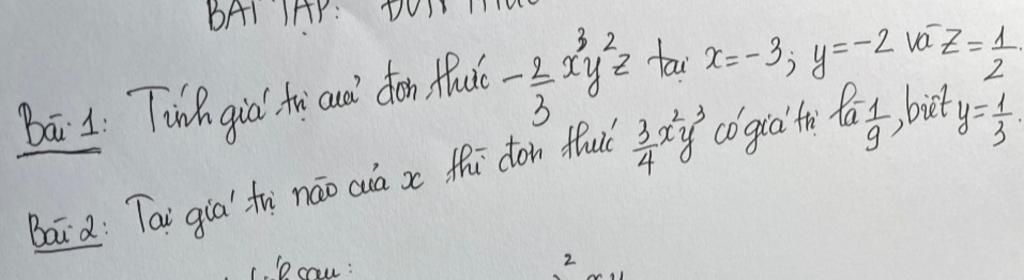 BÀI TẬP: ĐƠN THỨC
Bài 1: Tính giá trị của đơn thức -2/3 x³y²z tại x=-3; y=-2 và z=1/2.
Bài 2: Tại giá trị nào của x thì đơn thức 3/4 x²y³ có giá trị là 1/9, biết y=1/3.
sau: